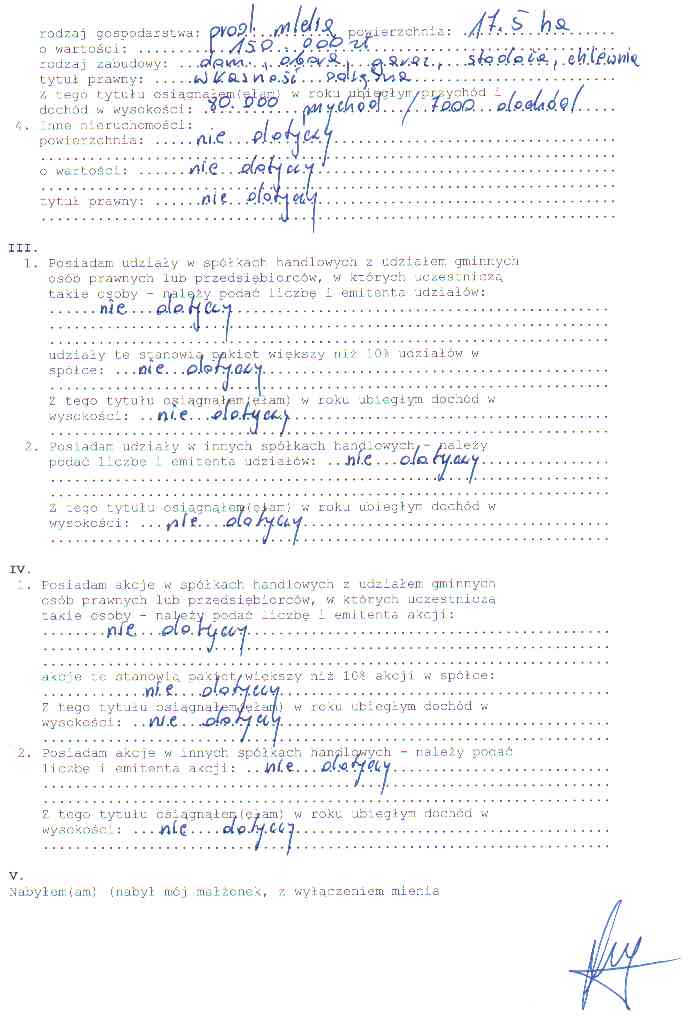 rodzaj gospodarstwa: prod. mleka powierzchnia: 17.5 ha
o wartości: 150 000 zł
rodzaj zabudowy: dom, obora, garaż, stodoła, chlewnia
tytuł prawny: własność
Z tego tytułu osiągnąłem(ęłam) w roku ubiegłym przychód i
dochód w wysokości: 80.000 przychód / 7000 dochód
4. Inne nieruchomości:
powierzchnia: nie dotyczy
o wartości: nie dotyczy
tytuł prawny: nie dotyczy
III.
1. Posiadam udziały w spółkach handlowych z udziałem gminnych
osób prawnych lub przedsiębiorców, w których uczestniczą
takie osoby – należy podać liczbę i emitenta udziałów:
nie dotyczy
udziały te stanowią pakiet większy niż 10% udziałów w
spółce: nie dotyczy
Z tego tytułu osiągnąłem(ęłam) w roku ubiegłym dochód w
wysokości: nie dotyczy
2. Posiadam udziały w innych spółkach handlowych – należy
podać liczbę i emitenta udziałów: nie dotyczy
Z tego tytułu osiągnąłem(ęłam) w roku ubiegłym dochód w
wysokości: nie dotyczy
IV.
1. Posiadam akcje w spółkach handlowych z udziałem gminnych
osób prawnych lub przedsiębiorców, w których uczestniczą
takie osoby – należy podać liczbę i emitenta akcji:
nie dotyczy
akcje te stanowią pakiet większy niż 10% akcji w spółce:
nie dotyczy
Z tego tytułu osiągnąłem(ęłam) w roku ubiegłym dochód w
wysokości: nie dotyczy
2. Posiadam akcje w innych spółkach handlowych – należy podać
liczbę i emitenta akcji: nie dotyczy
Z tego tytułu osiągnąłem(ęłam) w roku ubiegłym dochód w
wysokości: nie dotyczy
V.
Nabyłem(am) (nabył mój małżonek, z wyłączeniem mienia